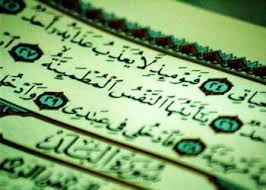 فَيَوْمَئِذٍ لَّا يُعَذِّبُ عَذَابَهُۥٓ أَحَدٌ
يَٰٓأَيَّتُهَا ٱلنَّفْسُ ٱلْمُطْمَئِنَّةُ
فَٱدْخُلِى فِى عِبَٰدِى ۝٢٩ وَٱدْخُلِى
سُورَةُ ٱلْبَلَدِ